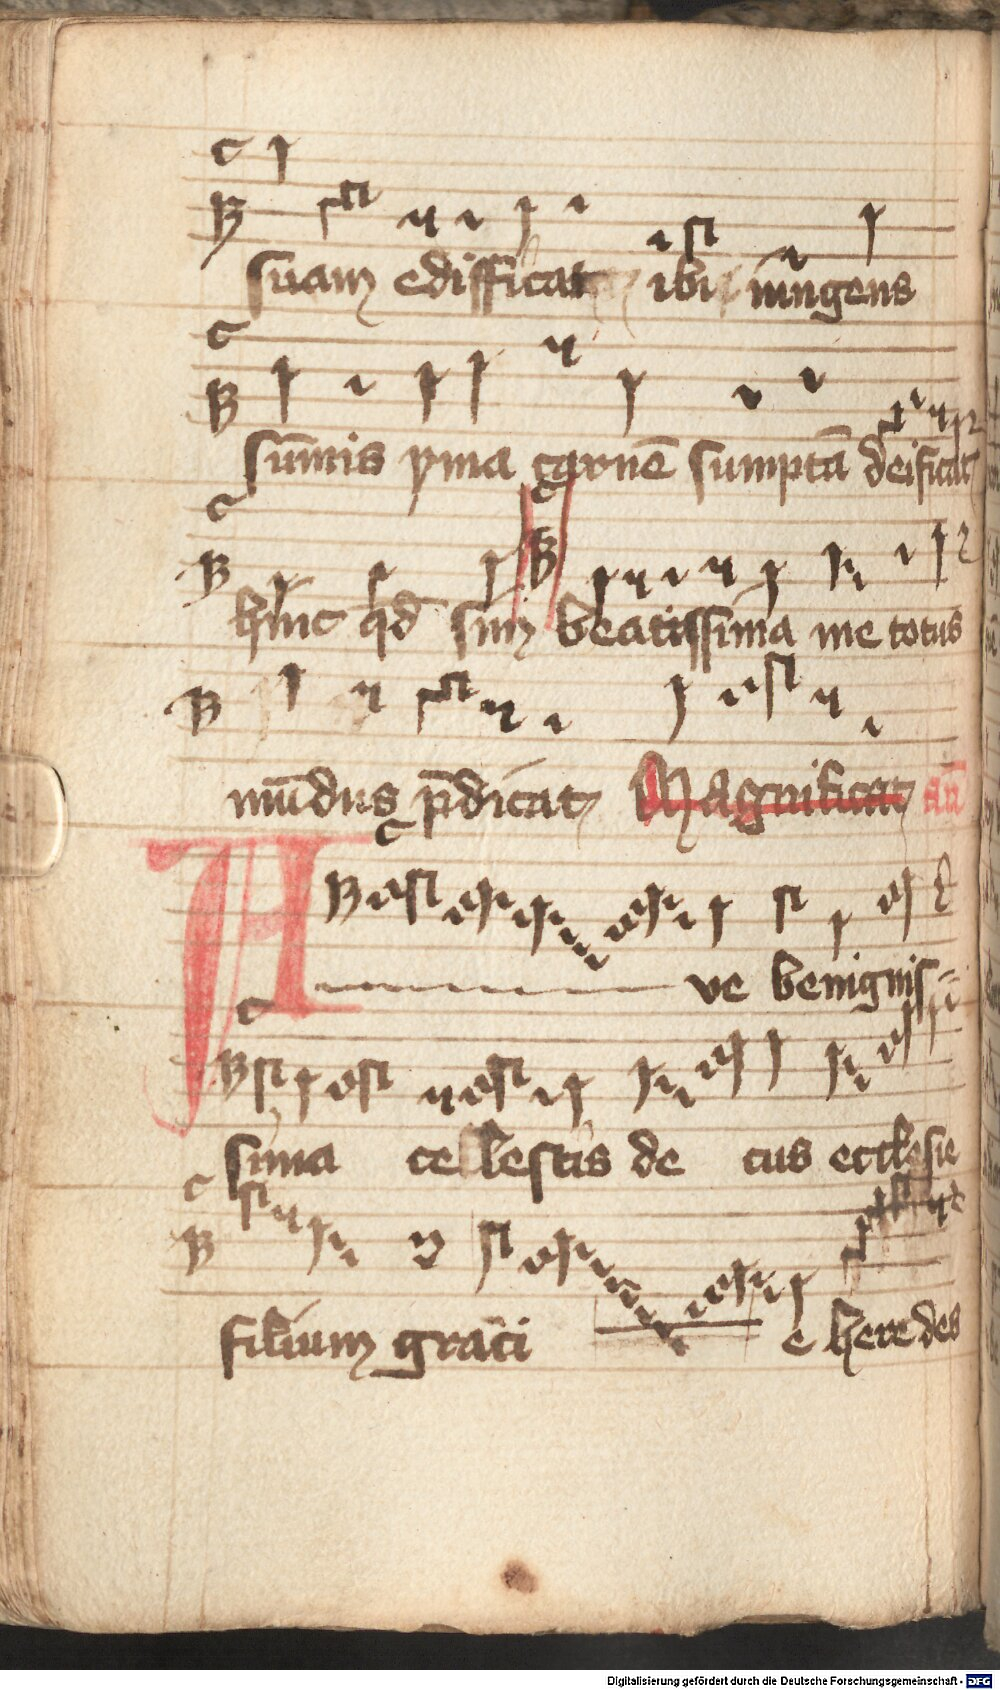 suam edifficat ibi iungens
sūmis yma carnē sumptā deificat
hinc qd̄ sim beatissima me totus
mūdus p̄dicat Magnificat an̄
Ave benignis=
sima celestis de cus ecclesie
filium grāci e heredes
Digitalisierung gefördert durch die Deutsche Forschungsgemeinschaft - DFG